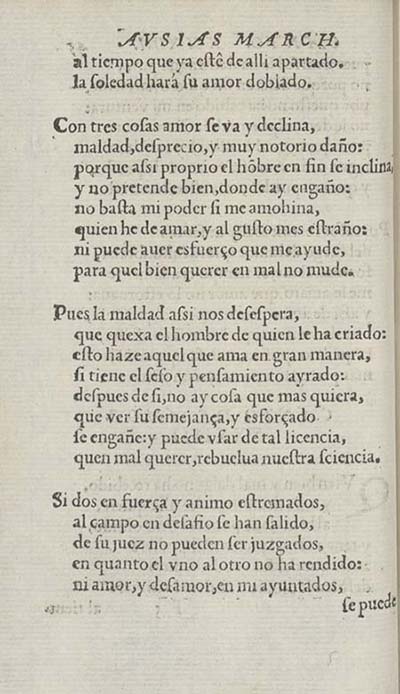 AVSIAS MARCH.
al tiempo que ya estê de alli apartado.
la soledad hará su amor doblado.
Con tres cosas amor se va y declina,
maldad, desprecio, y muy notorio daño:
porque assi proprio el hõbre en fin se inclina,
y no pretende bien, donde ay engaño:
no basta mi poder si me amohina,
quien he de amar, y al gusto mes estraño:
ni puede auer esfuerço que me ayude,
para quel bien querer en mal no mude.
Pues la maldad assi nos desespera,
que quexa el hombre de quien le ha criado:
esto haze aquel que ama en gran manera,
si tiene el seso y pensamiento ayrado:
despues de si, no ay cosa que mas quiera,
que ver su semejança, y esforçado
se engañe: y puede vsar de tal licencia,
quen mal querer, rebuelua nuestra sciencia.
Si dos en fuerça y animo estremados,
al campo en desafio se han salido,
de su juez no pueden ser juzgados,
en quanto el vno al otro no ha rendido:
ni amor, y desamor, en mi ayuntados,
se puede